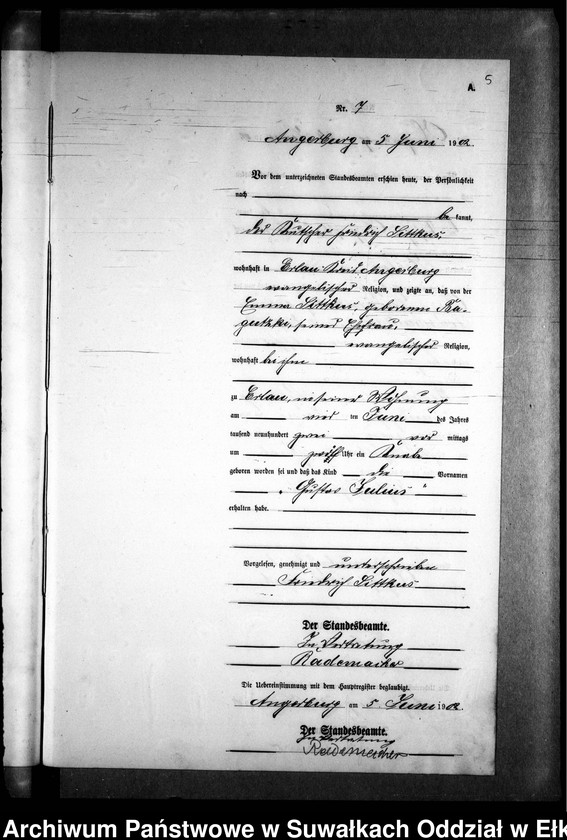 A. 5
Nr. 7
Angerburg am 5 Juni 1902.
Vor dem unterzeichneten Standesbeamten erschien heute, der Persönlichkeit
nach
be kannt,
der Kutscher Friedrich Littkus,
wohnhaft in Erlau Kreis Angerburg
evangelischer Religion, und zeigte an, daß von der
Emma Littkus, geborenen
seiner Ehefrau,
evangelischer Religion,
wohnhaft bei ihm
zu Erlau, in seiner Wohnung
am vier ten Juni des Jahres
tausend neunhundert zwei vor mittags
um zwölf Uhr ein Knabe
geboren worden sei und daß das Kind die Vornamen
„Gustav Julius"
erhalten habe.
Vorgelesen, genehmigt und unterschrieben
Friedrich Littkus
Der Standesbeamte.
In Vertretung
Rademacher
Die Uebereinstimmung mit dem Hauptregister beglaubigt.
Angerburg am 5 Juni 1902.
Der Standesbeamte.
In Vertretung
Rademacher
Archiwum Państwowe w Suwałkach Oddział w Ełk